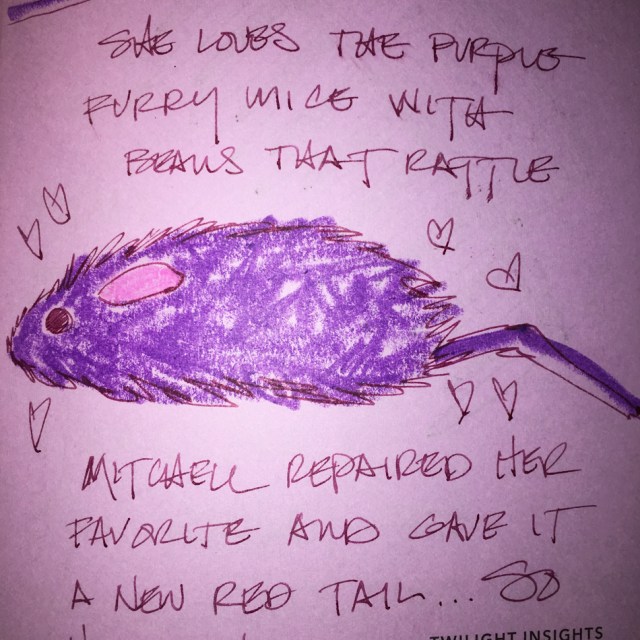 SHE LOVES THE PURPLE
FURRY MICE WITH
BEANS THAT RATTLE
MITCHELL REPAIRED HER
FAVORITE AND GAVE IT
A NEW RED TAIL... SO
TWILIGHT INSIGHTS